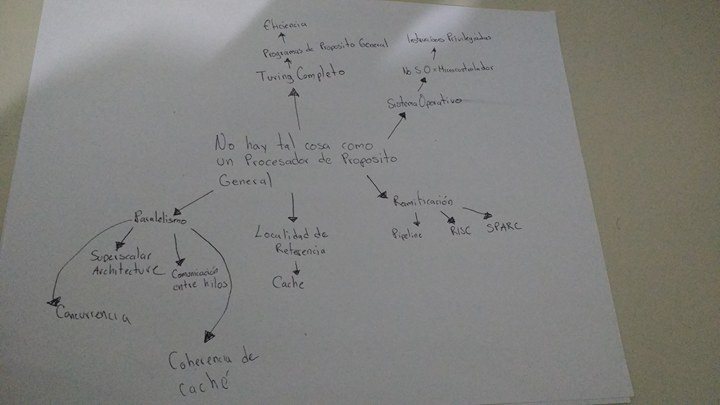 Eficiencia
Programas de Proposito General
Turing Completo
Instrucciones Privilegiadas
No S.O = Microcontrolador
Sistema Operativo
No hay tal cosa como
un Procesador de Proposito
General
Ramificación
Pipeline
RISC
SPARC
Paralelismo
Superscalar
Architecture
Comunicación
entre hilos
Concurrencia
Coherencia de
caché
Localidad de
Referencia
Cache